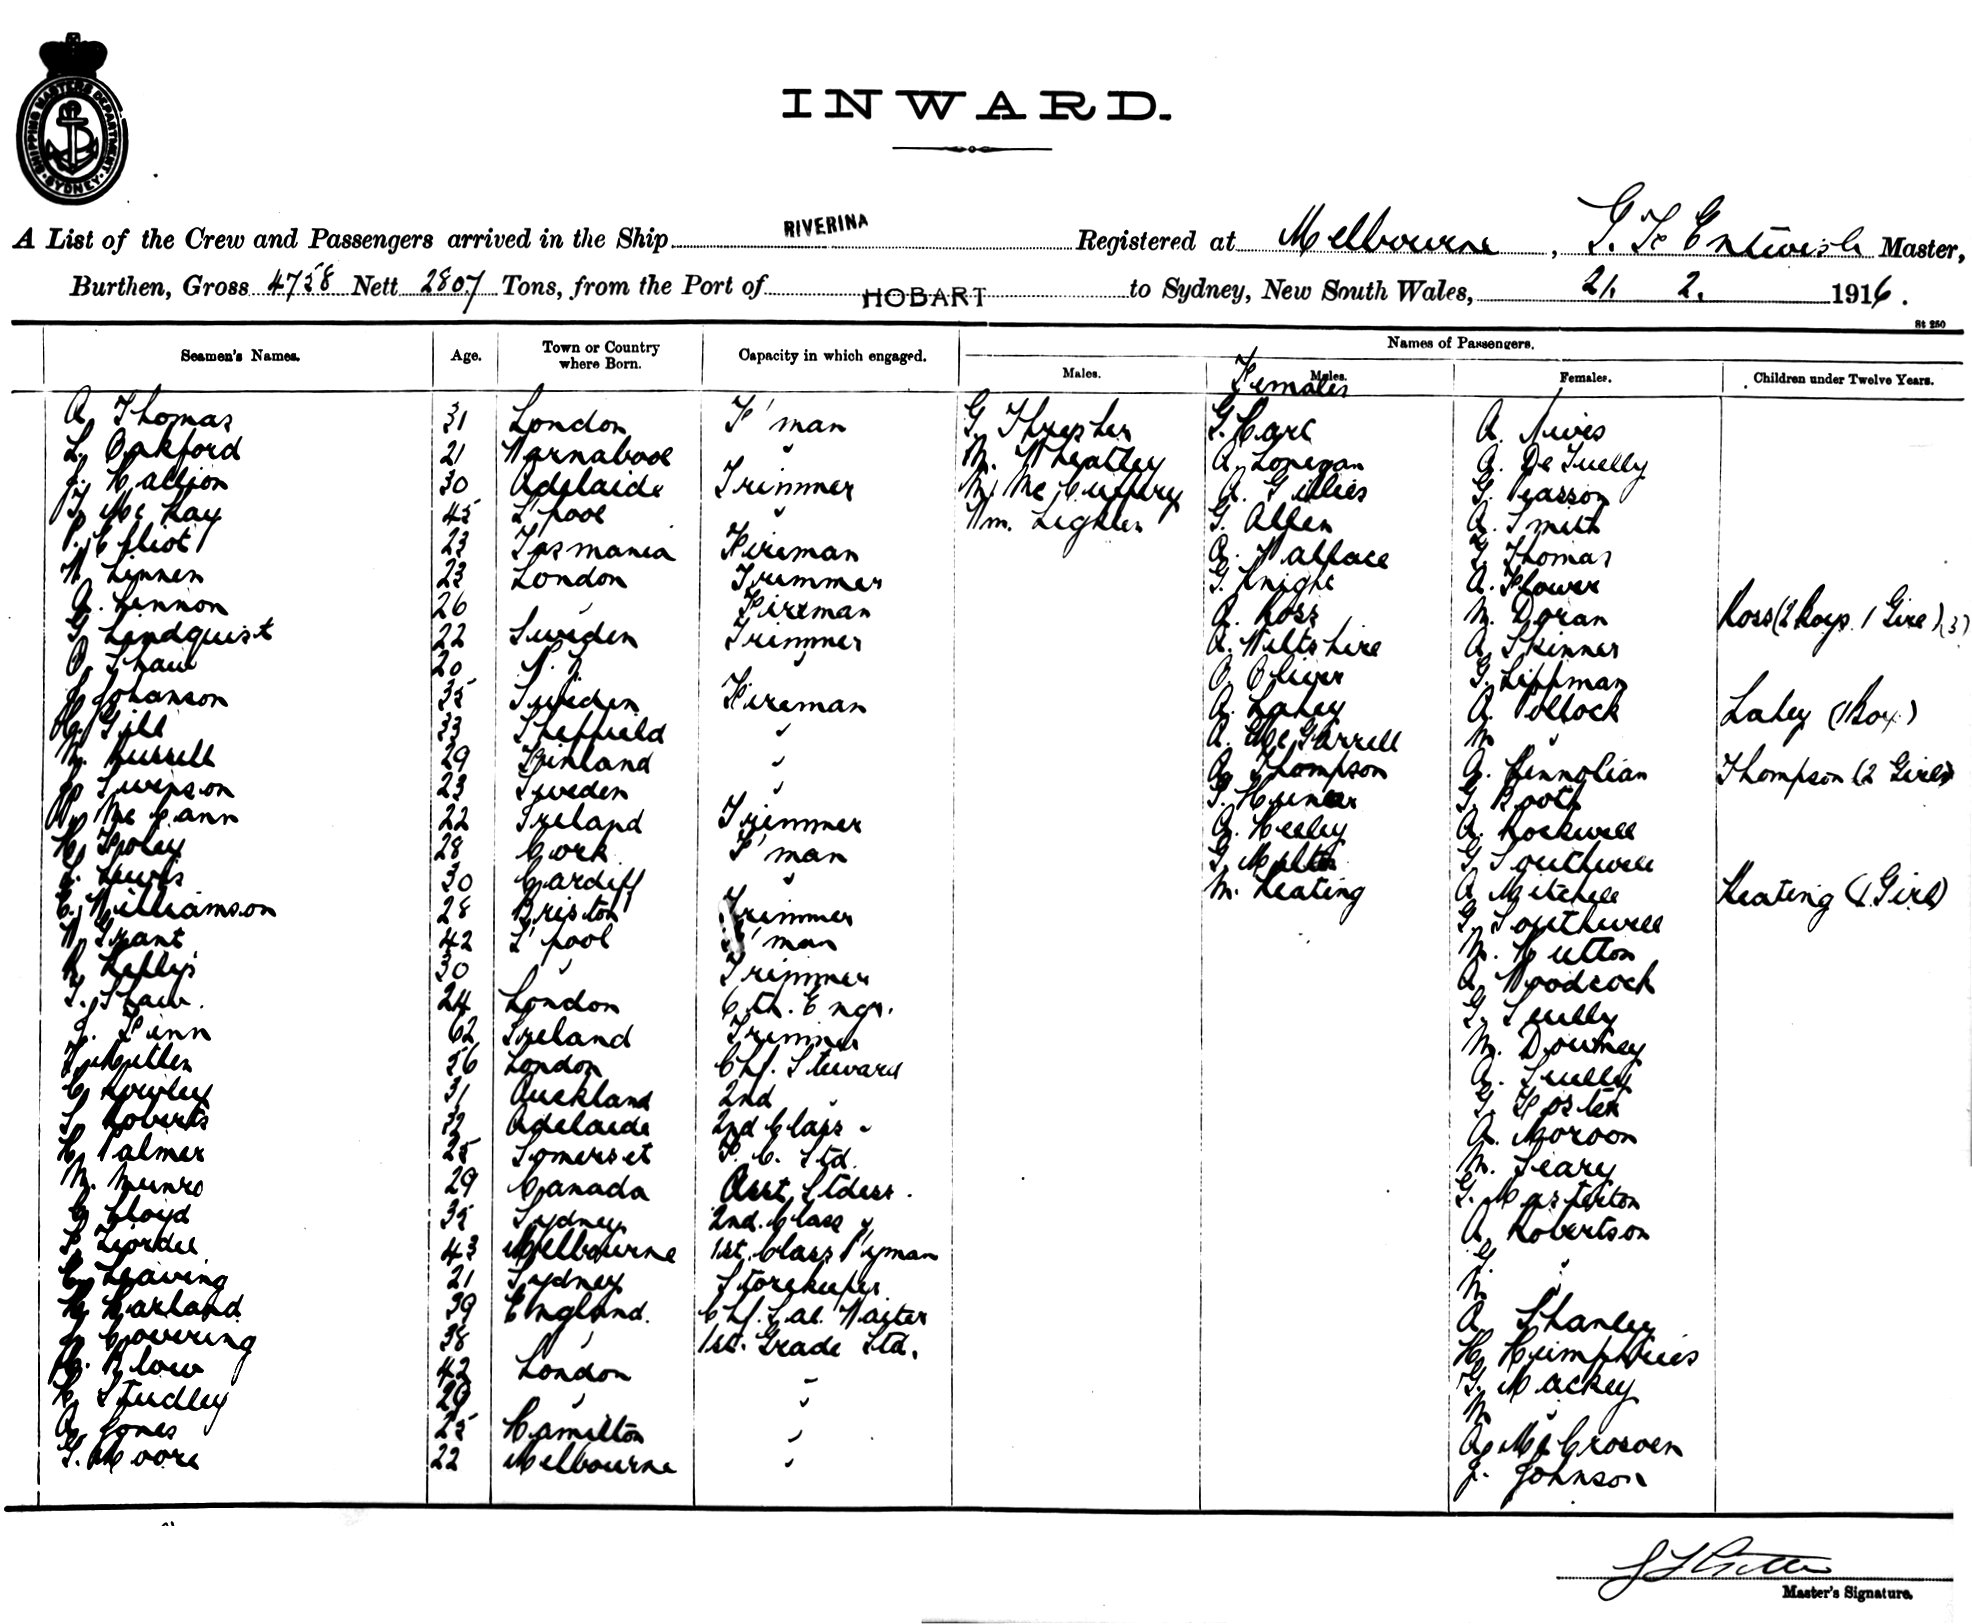 SHIPPING MASTERS DEPARTMENT. SYDNEY.
INWARD.
A List of the Crew and Passengers arrived in the Ship RIVERINA Registered at Melbourne, G. F. Entwisle Master,
Burthen, Gross 4758 Nett 2807 Tons, from the Port of HOBART to Sydney, New South Wales, 21. 2. 1916.
St 250
Seamen's Names. Age. Town or Country where Born. Capacity in which engaged. Names of Passengers.
Males. Males. Females Females. Children under Twelve Years.
A. Thomas 31 London F'man G. Thresher G. Hare A. Nives
L. Oakford 21 Warnabool " M. Wheatley A. Lonegan A. De Tuelly
J. Hallion 30 Adelaide Trimmer M. A. Gillies G. Pearson
T. McKay 45 L'pool " Wm. Leghlen G. Allen A. Smith
P. Elliot 23 Tasmania Fireman A. Wallace G. Thomas
W. Linnen 23 London Trimmer G. Knight A. Flower
A. Lennon 26 " Fireman A. Ross M. Doran Ross (2 Boys 1 Girl) (3)
G. Lindquist 22 Sweden Trimmer A. Wiltshire A. Skinner
A. Shaw 20 N. Z. " A. Oliver G. Lippman
J. Johanson 35 Sweden Fireman A. Lahey A. Pollock Lahey (1 Boy)
H. Gill 33 Sheffield " A. M. "
M. Russell 29 Finland " A. Thompson A. Thompson (2 Girls)
J. Swenson 23 Sweden " G. Hunter G. Booth
P. McCann 22 Ireland Trimmer A. Heeley A. Rockwell
H. Foley 28 Cork F'man G. G. Southwell
L. Lewis 30 Cardiff " M. Keating A. Mitchell Keating (1 Girl)
C. Williamson 28 Bristol Trimmer G. Southwell
W. Grant 42 L'pool F'man M. Hutton
R. Kelly 30 " Trimmer A. Woodcock
T. Shaw. 24 London 6th. Engr. G. Scully
J. Finn 62 Ireland Trimmer M. Downey
T. 56 London Chf. Steward A. Scully
C. Rowley 31 Auckland 2nd " G. Foster
S. Roberts 32 Adelaide 2nd Class " A. Moroon
H. Palmer 25 Somerset F. C. Std. M. Leary
M. Munro 29 Canada Asst. Stdess. G. Masterton
C. Lloyd 35 Sydney 2nd. Class " A. Robertson
P. 43 Melbourne 1st. Class P'yman G. "
C. Leaving 21 Sydney Storekeeper M. "
H. Harland 39 England. Chf. Sal. Waiter A. Stanley
J. 38 " 1st. Grade Std. H. Humphries
H. Blow 42 London " G. Mackey
H. Studley 29 " " M. "
A. Jones 25 Hamilton " A. McCrossen
G. Moore 22 Melbourne " J. Johnson
Master's Signature.